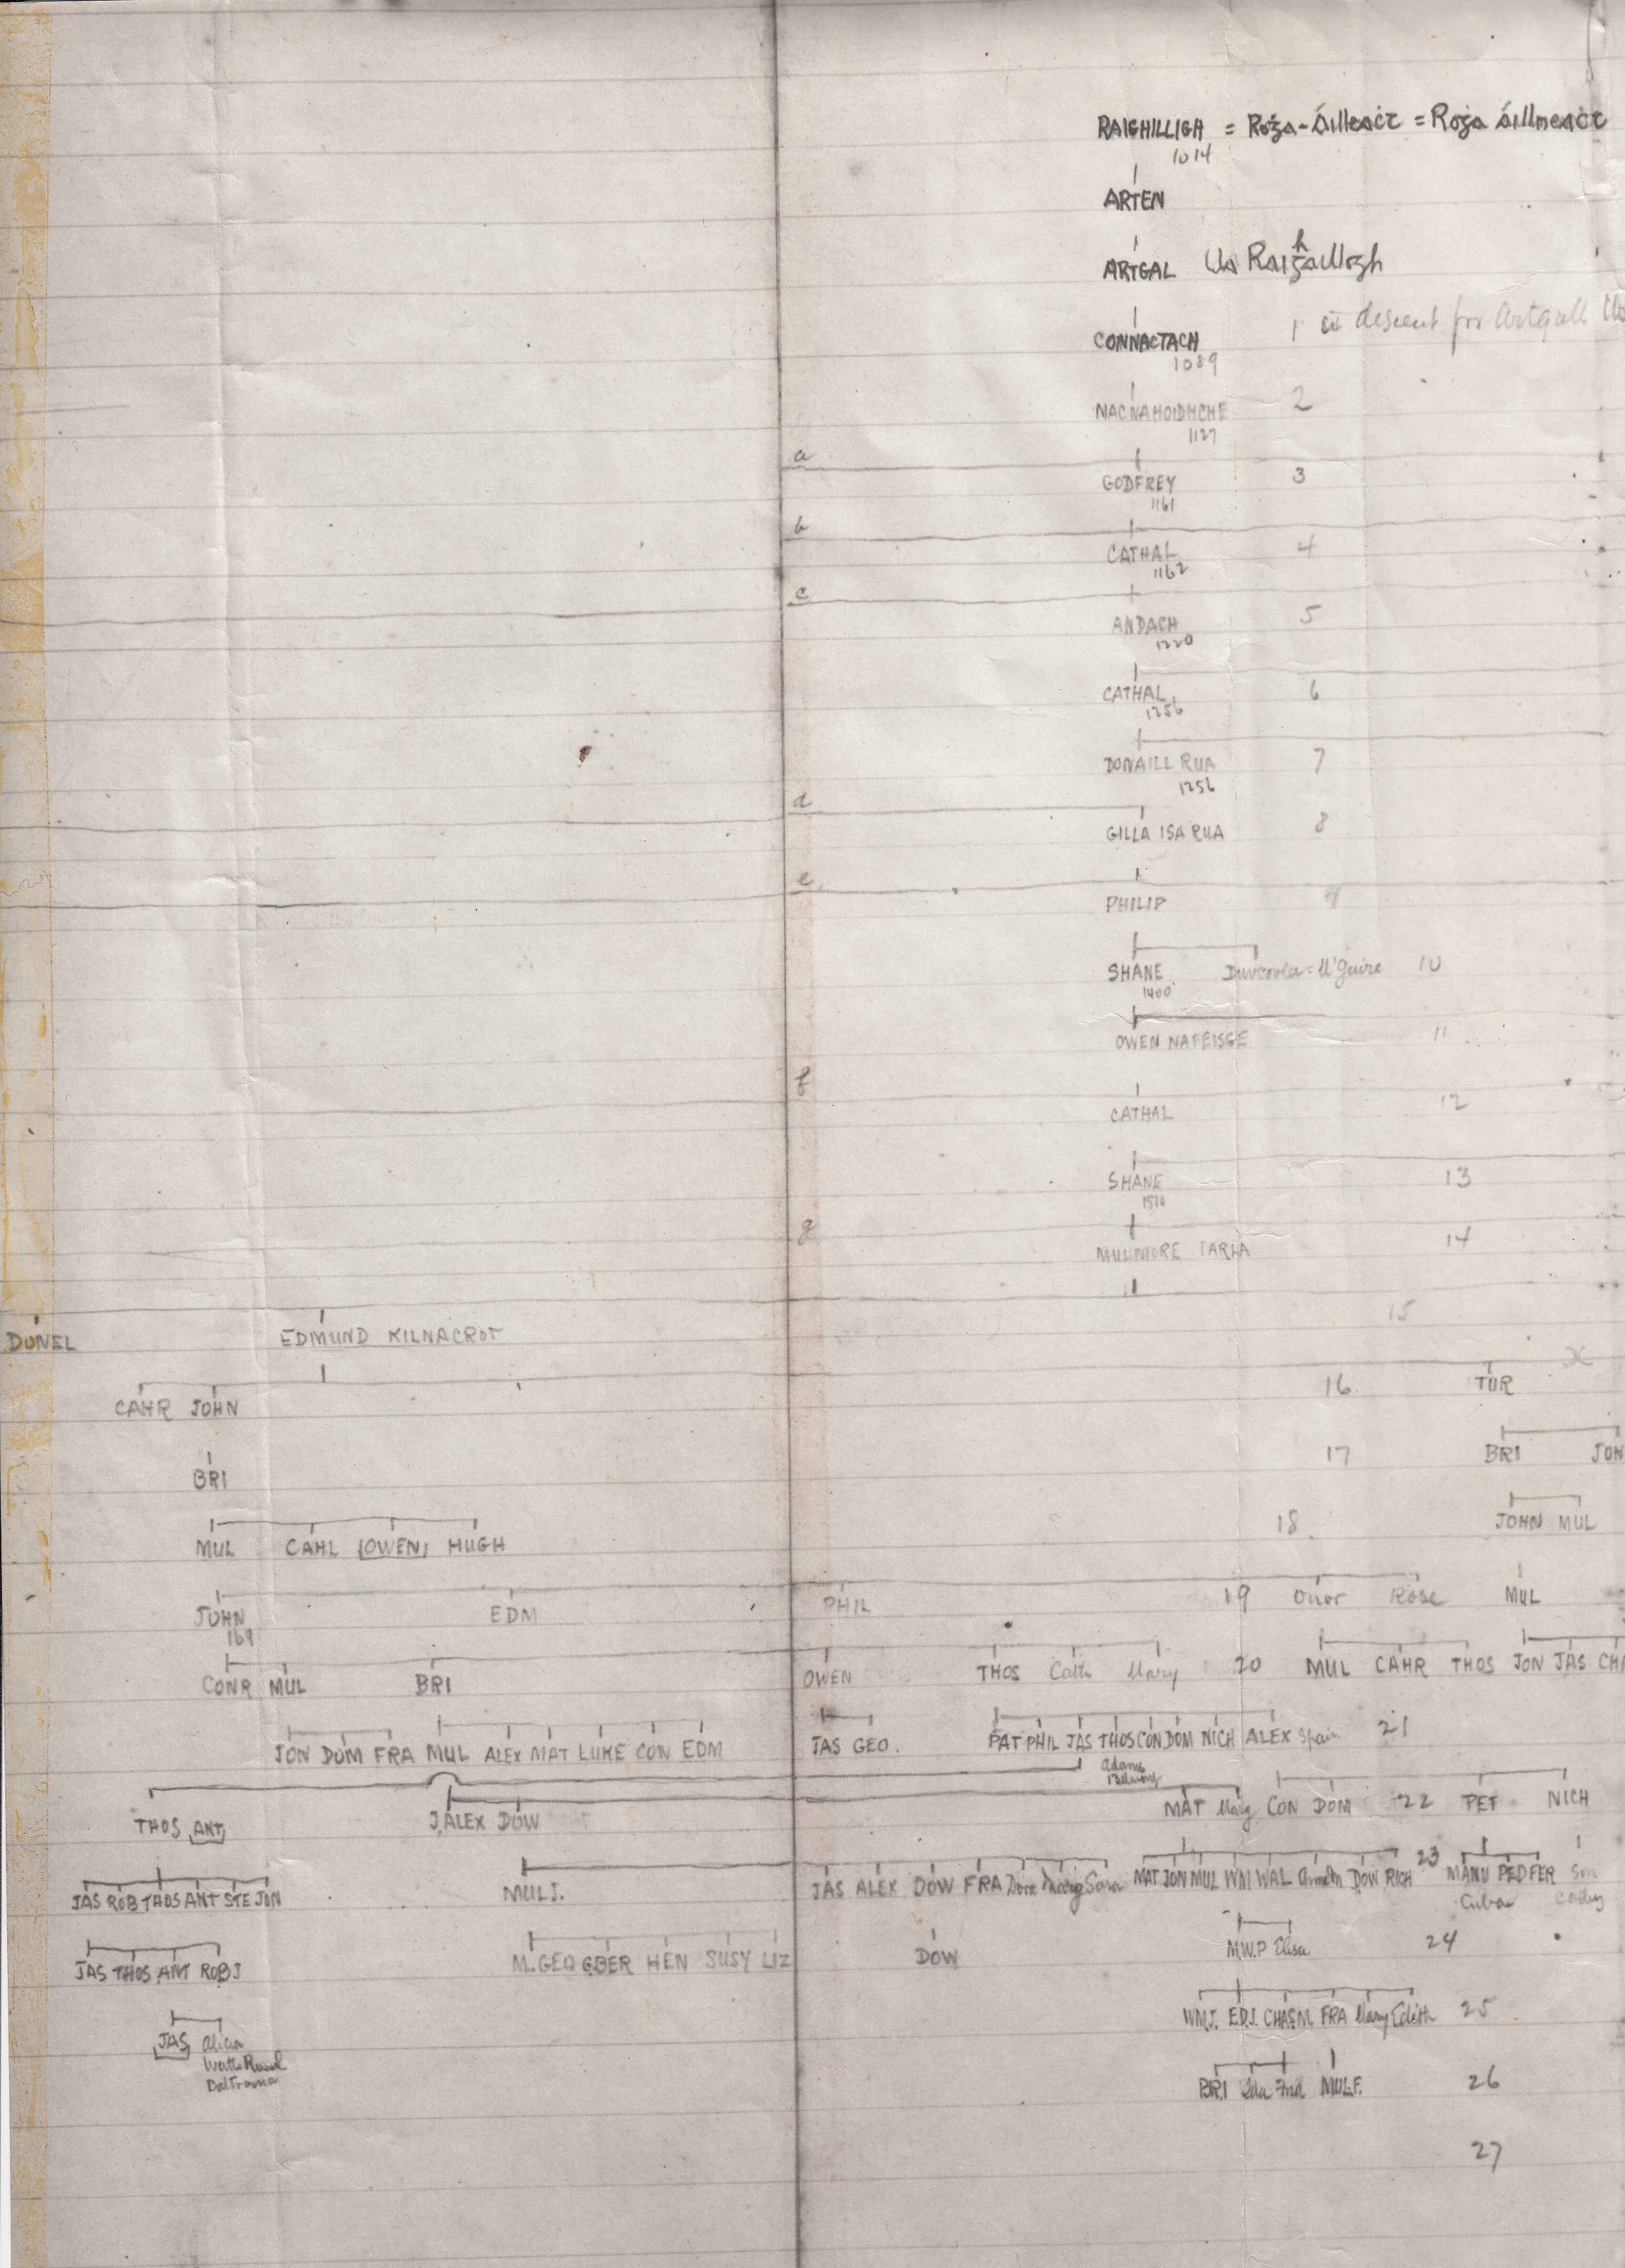 RAIGHILLIGH = Roġa-áilleaċt = Roġa áillneaċt
1014
ARTEN
ARTGAL Ua Raighaillogh
CONNACTACH 1 st descent for Artgall
1089
MACNAHOIDHCHE 2
1127
a
GODFREY 3
1161
b
CATHAL 4
1162
c
ANDACH 5
1220
CATHAL 6
1256
DONAILL RUA 7
1256
d
GILLA ISA RUA 8
e
PHILIP 9
SHANE Duvcovla = M'Guire 10
1400
OWEN NAFEISGE 11
f
CATHAL 12
SHANE 13
1510
g
MULMORE IARLA 14
15
DONEL EDMUND KILNACROT
x
CAHR JOHN 16 TUR
BRI 17 BRI JON
MUL CAHL (OWEN) HUGH 18. JOHN MUL
JOHN EDM PHIL 19 Onor Rose MUL
169
CONR MUL BRI OWEN THOS Cath Mary 20 MUL CAHR THOS JON JAS CHA
JON DOM FRA MUL ALEX MAT LUKE CON EDM JAS GEO. PAT PHIL JAS THOS CON DOM NICH ALEX Spain 21
Adams
THOS ANT J.ALEX DOW MAT Marg CON DOM 22 PET NICH
JAS ROB THOS ANT STE JON MUL J. JAS ALEX DOW FRA Dora Marg Sara MAT JON MUL WM WAL DOW RICH 23 MANU PED FER son
Cuba
JAS THOS ANT ROBJ M.GEO GBER HEN SUSY LIZ DOW M.W.P Elisa 24
WM.J. ED.J. CHAS.M. FRA Mary Edith 25
JAS Alicia
BRI Ida MUL.F. 26
27